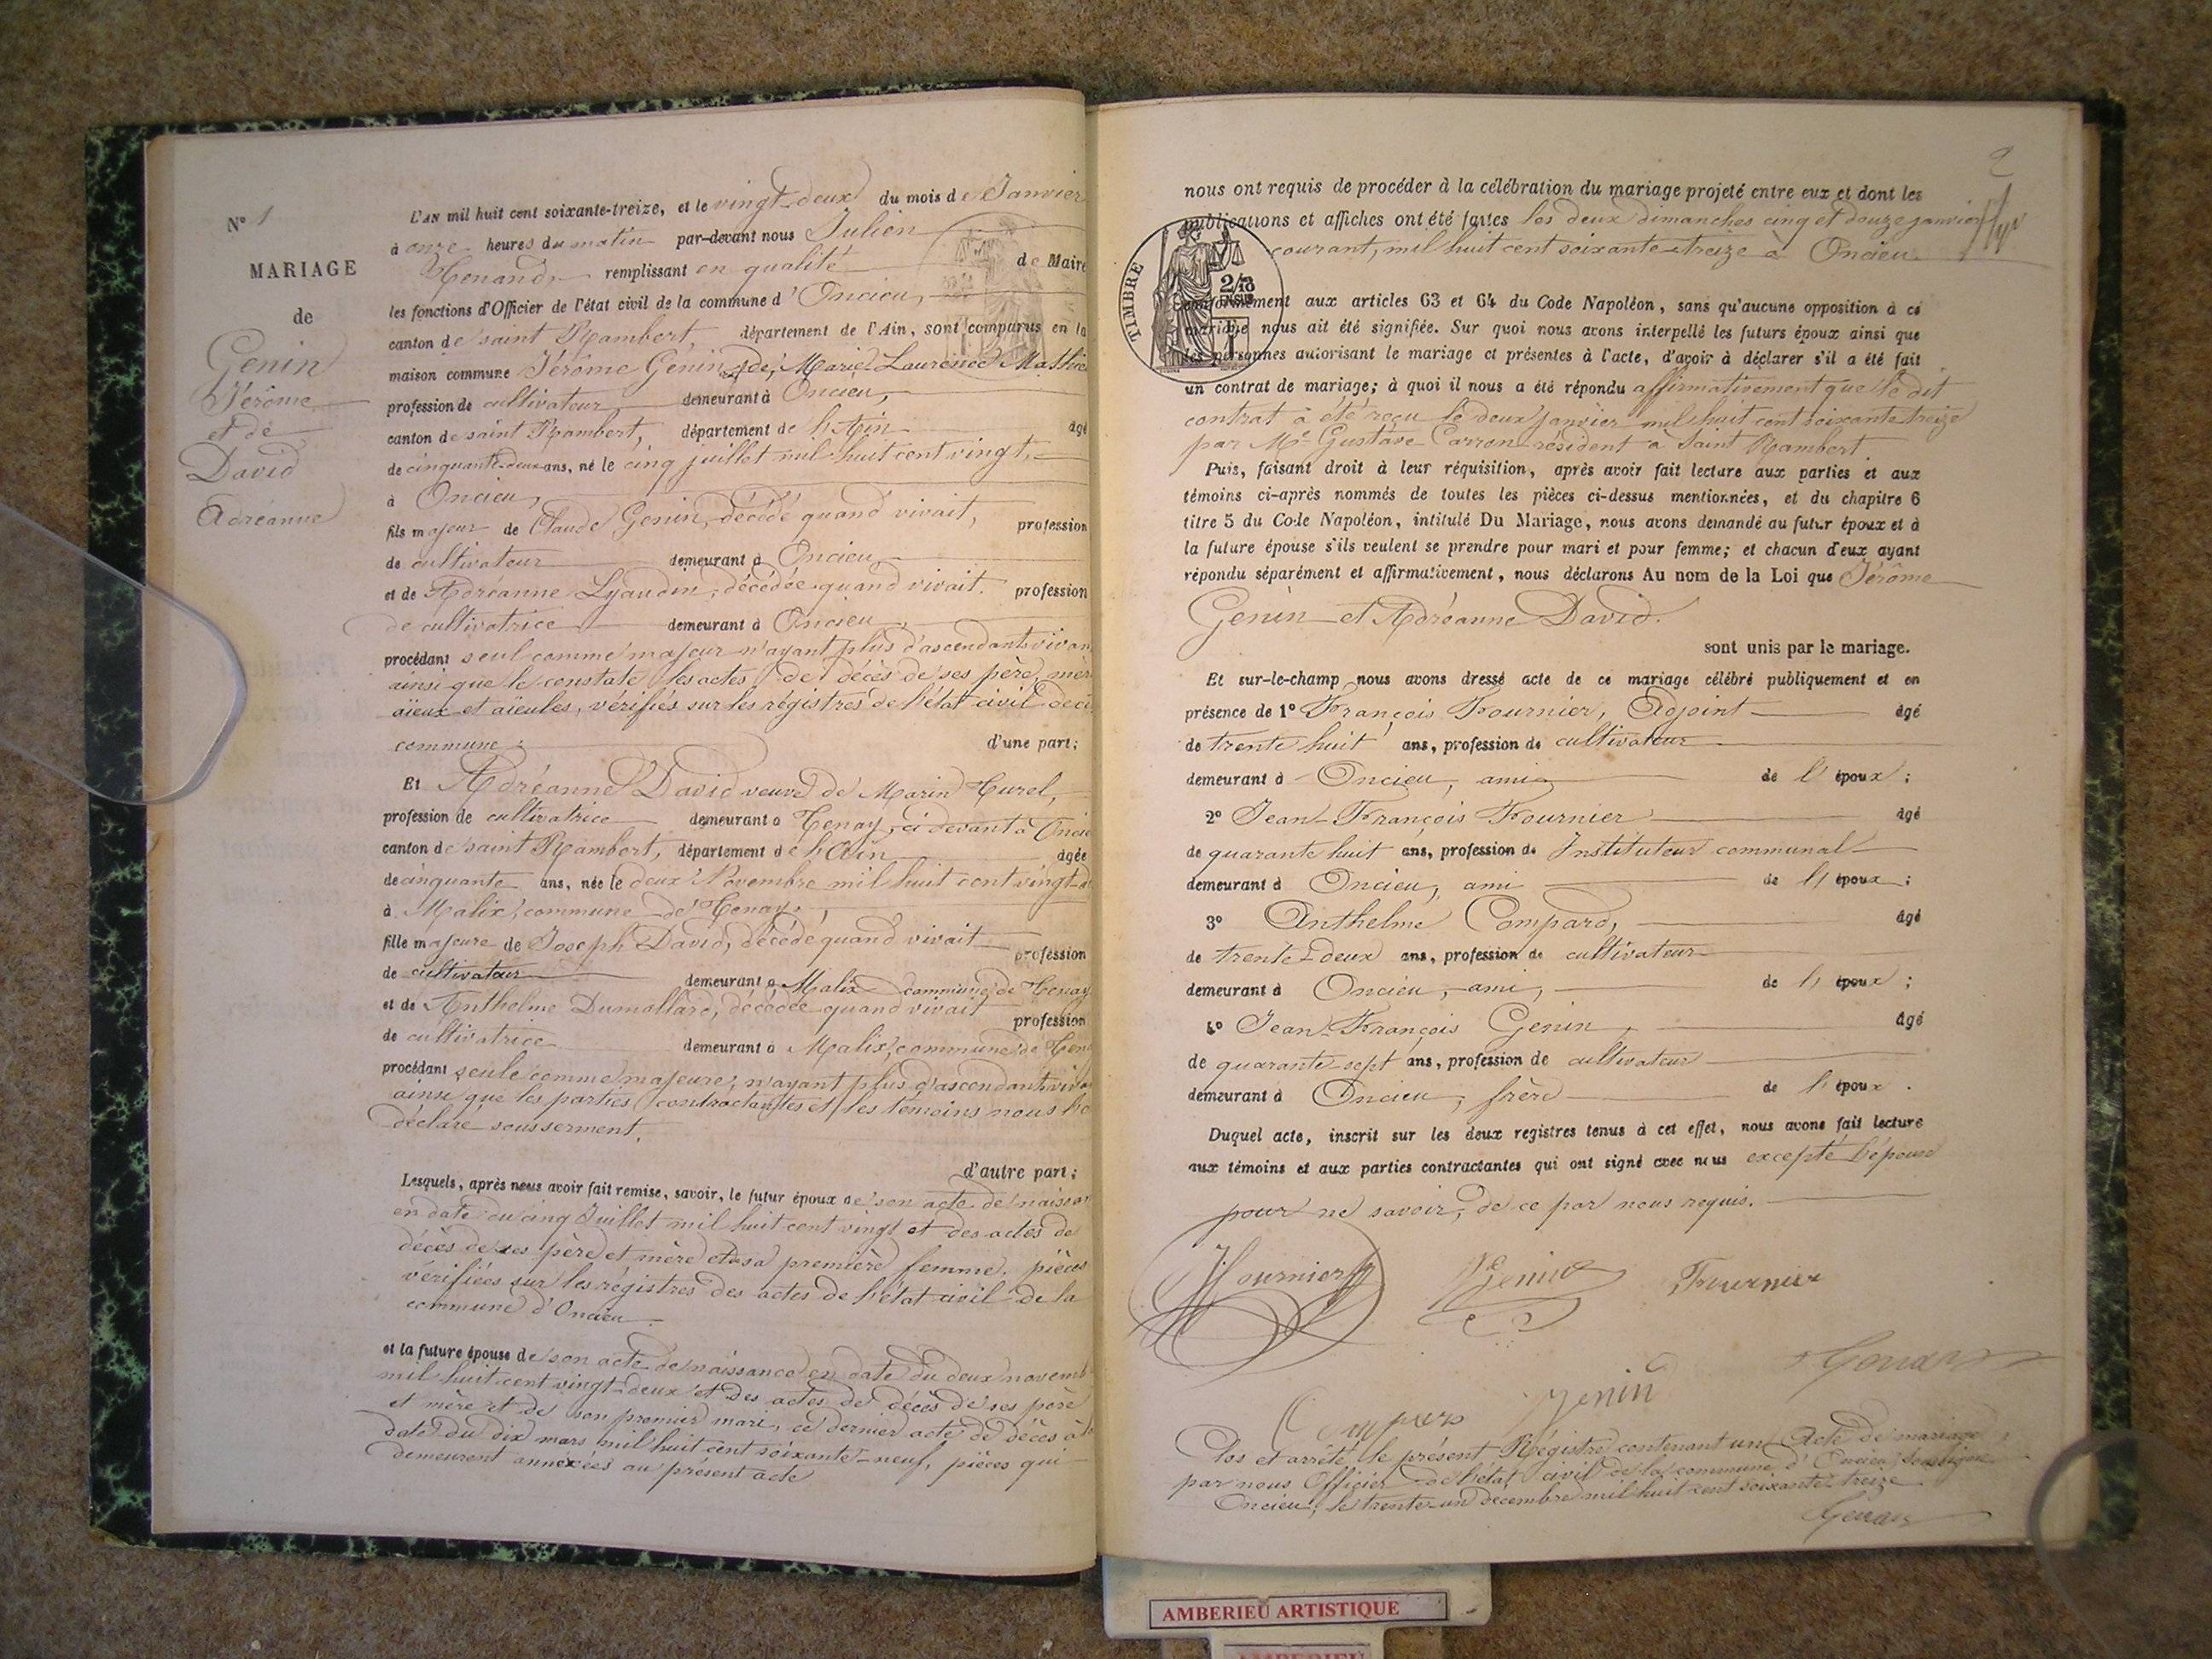 N° 1
MARIAGE
de
Genin
Jérôme
et de
David
Adréanne
L'AN mil huit cent soixante-treize, et le vingt-deux du mois de Janvier
à onze heures du matin par-devant nous Julien
Henand, remplissant en qualité de Maire
les fonctions d'Officier de l'état civil de la commune d'Oncieu,
canton de saint Rambert, département de l'Ain, sont comparus en la
maison commune Jérôme Genin de Marie Laurence Mathie
profession de cultivateur demeurant à Oncieu,
canton de saint Rambert, département de l'Ain âgé
de cinquante-deux ans, né le cinq juillet mil huit cent vingt,
à Oncieu,
fils majeur de Claude Genin, décédé quand vivait, profession
de cultivateur demeurant à Oncieu,
et de Adréanne Lyaudin, décédée quand vivait. profession
de cultivatrice demeurant à Oncieu,
procédant seul comme majeur n'ayant plus d'ascendants vivan
ainsi que le constate les actes de décès de ses père, mèr
aïeux et aïeules, vérifiés sur les régistres de l'état civil de ce
commune; d'une part;
Et Adréanne David veuve de Marin Curel,
profession de cultivatrice demeurant à Tenay, ci devant à Oncie
canton de saint Rambert, département de l'Ain âgée
de cinquante ans, née le deux Novembre mil huit cent vingt-d
à Malix, commune de Tenay,
fille majeure de Joseph David, décédé quand vivait profession
de cultivateur demeurant à Malix commune de Tenay
et de Anthelme Dumollard, décédée quand vivait profession
de cultivatrice demeurant à Malix, commune de Ten
procédant seule comme majeure, n'ayant plus d'ascendants viva
ainsi que les parties contractantes et les témoins nous l'o
déclaré sous serment.
d'autre part;
Lesquels, après nous avoir fait remise, savoir, le futur époux de son acte de naissan
en date du cinq Juillet mil huit cent vingt et des actes de
décès de ses père et mère et de sa première femme, pièces
vérifiées sur les régistres des actes de l'état civil de la
commune d'Oncieu
et la future épouse de son acte de naissance en date du deux novemb
mil huit cent vingt-deux et des actes de décès de ses père
et mère et de son premier mari, ce dernier acte de décès à l
date du dix mars mil huit cent soixante-neuf, pièces qui
demeurent annexées au présent acte
2
nous ont requis de procéder à la célébration du mariage projeté entre eux et dont les
publications et affiches ont été faites les deux dimanches cinq et douze janvier
courant, mil huit cent soixante-treize à Oncieu.
TIMBRE
2/10
EN SUS
conformément aux articles 63 et 64 du Code Napoléon, sans qu'aucune opposition à ce
mariage nous ait été signifiée. Sur quoi nous avons interpellé les futurs époux ainsi que
les personnes autorisant le mariage et présentes à l'acte, d'avoir à déclarer s'il a été fait
un contrat de mariage; à quoi il nous a été répondu affirmativement que le dit
contrat a été reçu le deux janvier mil huit cent soixante treize
par Me Gustave Carron résident à Saint Rambert
Puis, faisant droit à leur réquisition, après avoir fait lecture aux parties et aux
témoins ci-après nommés de toutes les pièces ci-dessus mentionnées, et du chapitre 6
titre 5 du Code Napoléon, intitulé Du Mariage, nous avons demandé au futur époux et à
la future épouse s'ils veulent se prendre pour mari et pour femme; et chacun d'eux ayant
répondu séparément et affirmativement, nous déclarons Au nom de la Loi que Jérôme
Genin et Adréanne David.
sont unis par le mariage.
Et sur-le-champ nous avons dressé acte de ce mariage célébré publiquement et en
présence de 1° François Fournier, Adjoint âgé
de trente huit ans, profession de cultivateur
demeurant à Oncieu, ami de l'époux;
2° Jean-François Fournier âgé
de quarante huit ans, profession de Instituteur communal
demeurant à Oncieu, ami de l'époux;
3° Anthelme Compard, âgé
de trente-deux ans, profession de cultivateur
demeurant à Oncieu, ami, de l'époux;
4° Jean-François Genin, âgé
de quarante-sept ans, profession de cultivateur
demeurant à Oncieu, frère de l'époux.
Duquel acte, inscrit sur les deux registres tenus à cet effet, nous avons fait lecture
aux témoins et aux parties contractantes qui ont signé avec nous excepté l'épouse
pour ne savoir, de ce par nous requis.
Fournier Genin Fournier
Genin
Clos et arrêté le présent Régistre contenant un Acte de mariage,
par nous Officier de l'état civil de la commune d'Oncieu soussigné
Oncieu, le trente-un décembre mil huit cent soixante-treize
AMBERIEU ARTISTIQUE
AMBERIEU